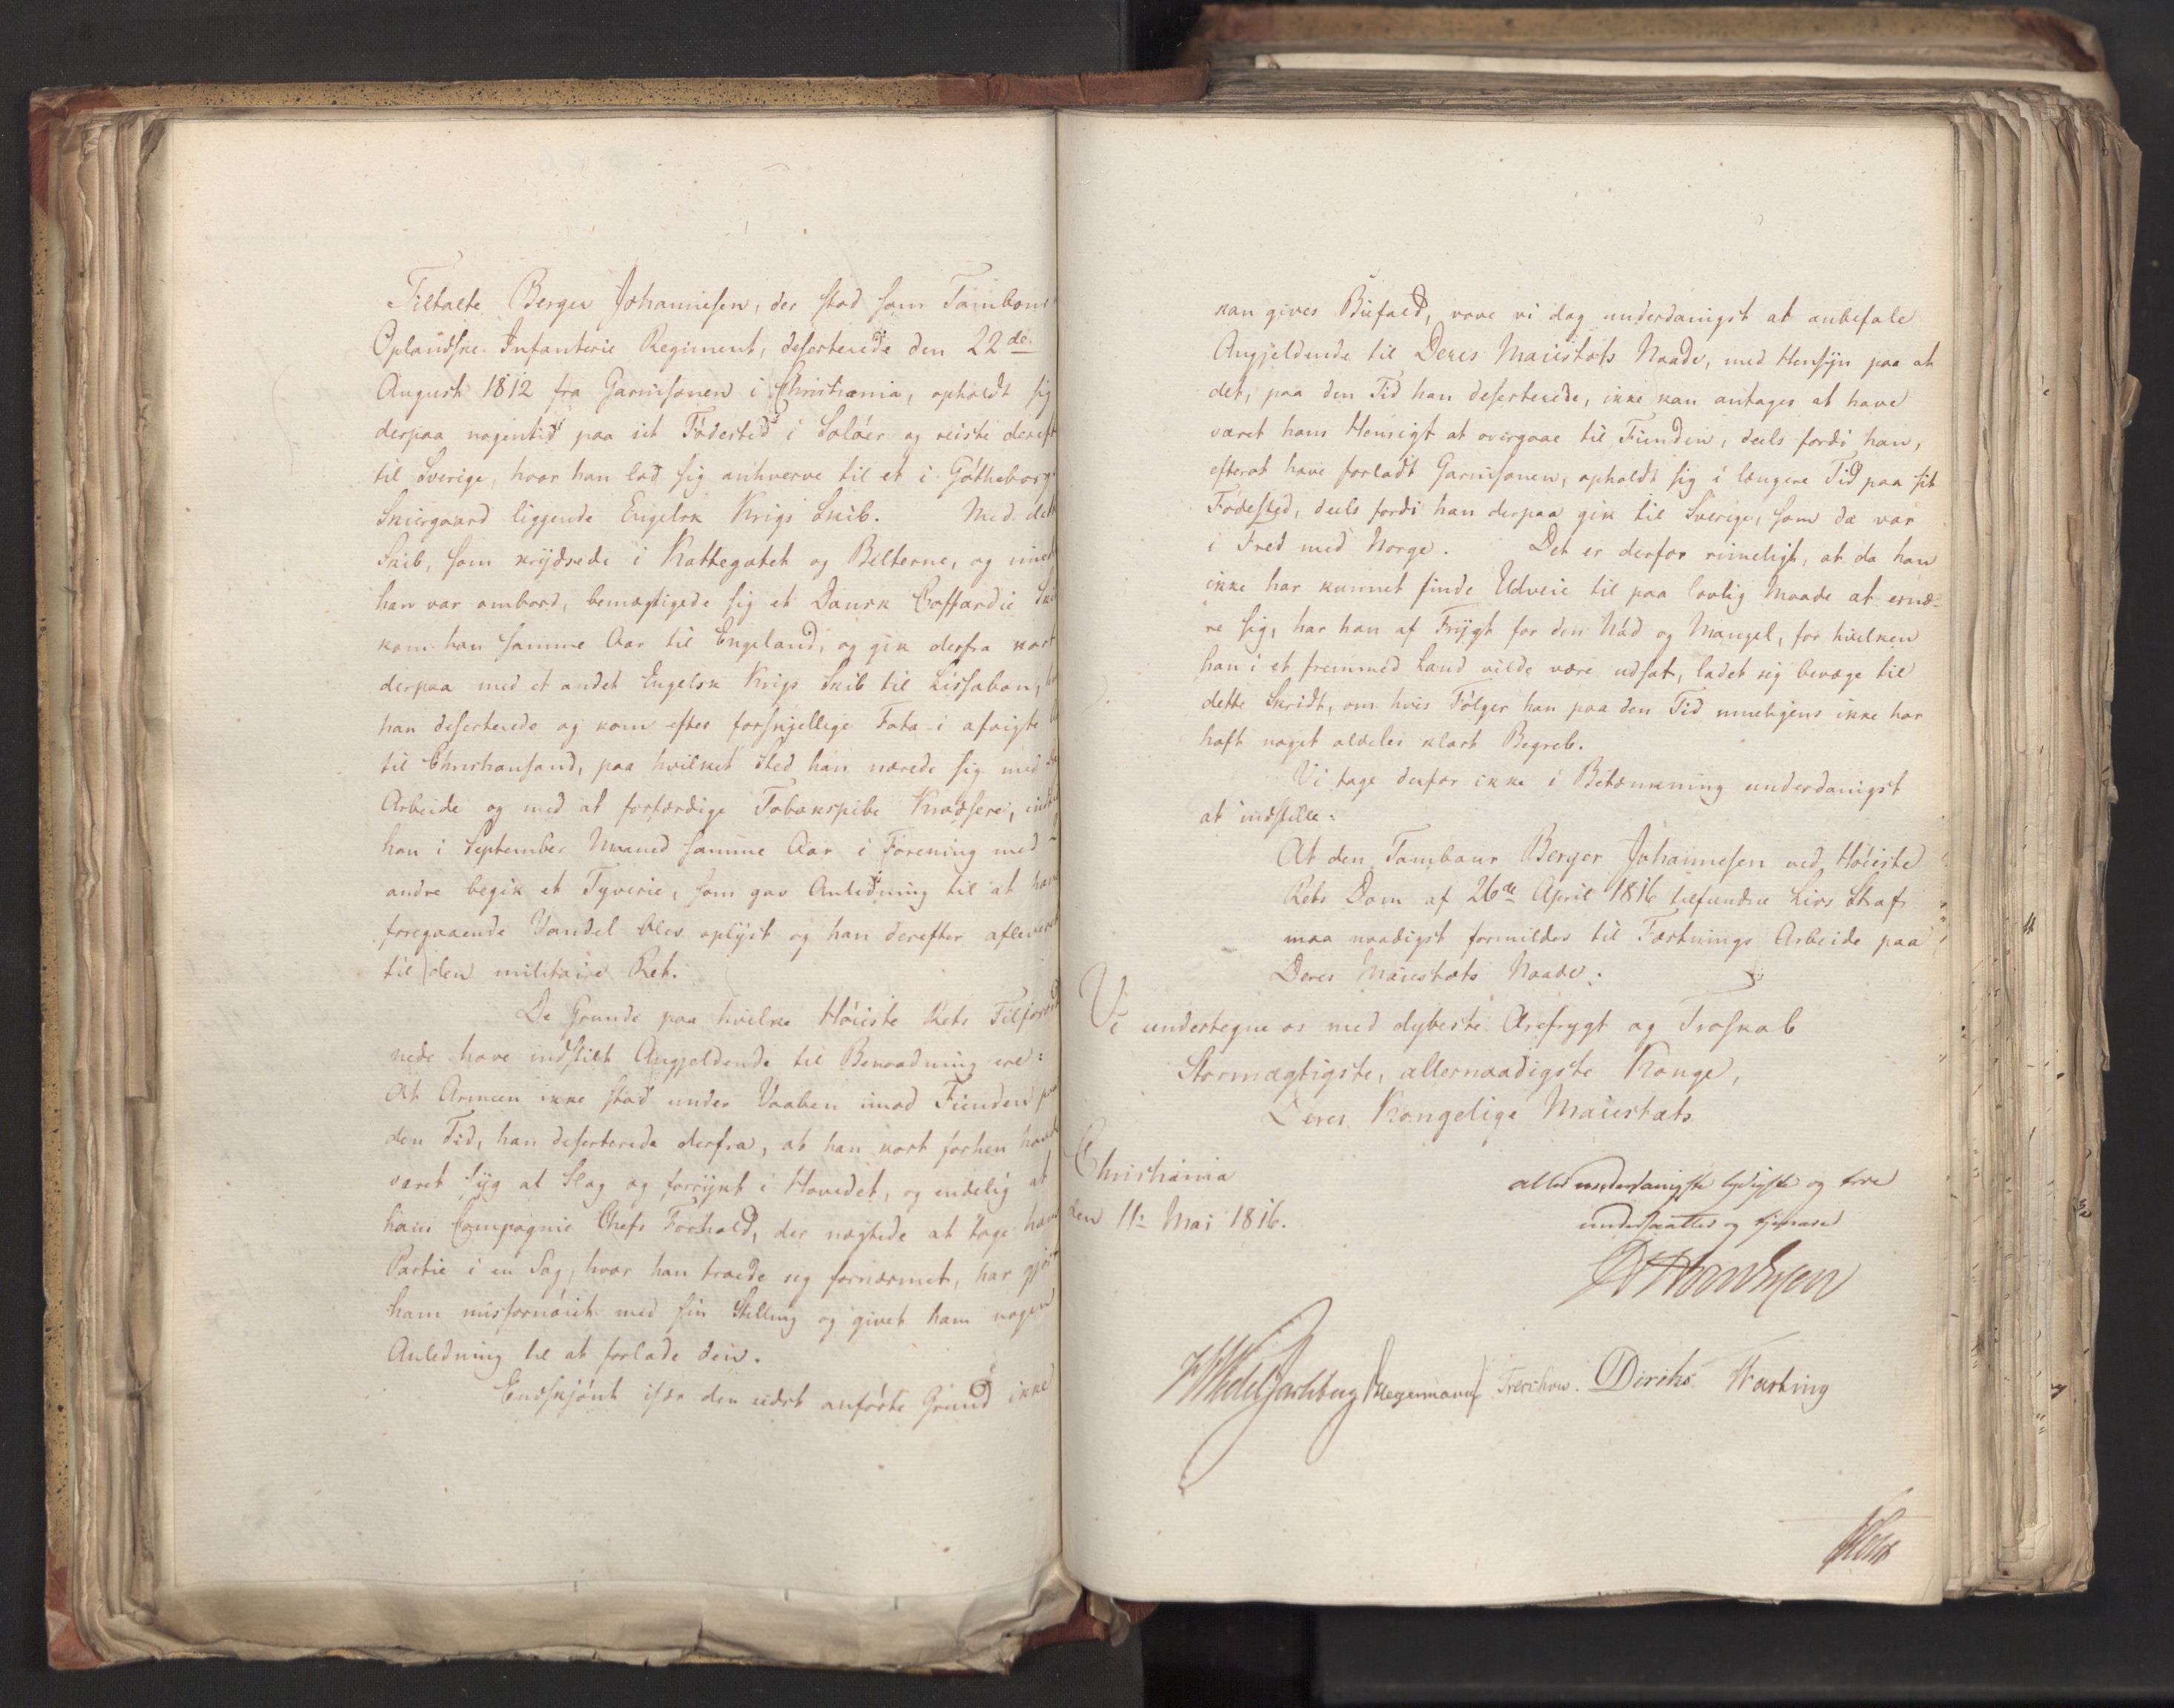 Tiltalte Berger Johannesen, der stod som Tambour
Oplandske Infanterie Regiment, deserterede den 22de
August 1812 fra Garnisonen i Christiania, opholdt sig
derpaa nogentid paa sit Födested i Solöer og reiste dereft
til Sverige, hvor han lod sig anhverve til et i Götheborgs
Skiergaard liggende Engelsk Krigs Skib. Med dett
Skib, som krydsede i Kattegatet og Belterne, og
han var ombord, bemægtigede sig et Dansk Coffardie Ski
kom han samme Aar til Engeland, og gik derfra kort
derpaa med et andet Engelsk Krigs Skib til Lissabon,
han deserterede og kom efter forskjellige Fata i afvigte
til Christiansand, paa hvilket Sted han nærede sig med
Arbeide og med at forfærdige Tobakspibe Kradsere, indtil
han i September Maaned samme Aar i Forening med
andre begik et Tyverie, som gav Anledning til at hans
foregaaende Vandel blev oplyst og han derefter afleveret
til den militaire Ret.
De Grunde paa hvilke Höieste Rets Tilforord
nede have indstilt Angjeldende til Benaadning ere:
At Armeen ikke stod under Vaaben imod Fienden paa
den Tid, han deserterede derfra, at han kort forhen havde
været syg at Slag og forrykt i Hovedet, og endelig at
hans Compagnie Chefs Forhold, der nægtede at tage hans
Partie i en Sag, hvor han troede sig fornærmet, har gjort
ham misfornöiet med sin Stilling og givet ham nogen
Anledning til at forlade den.
Endskjönt især den sidst anförte Grund ikke
kan gives Biefald, vove vi dog underdanigst at anbefale
Angjeldende til Deres Maiestæts Naade, med Hensyn paa at
det, paa den Tid han deserterede, ikke kan antages at have
været hans Hensigt at overgaae til Fienden, deels fordi han,
efterat have forladt Garnisonen, opholdt sig i længere Tid paa sit
Födested, deels fordi han derpaa gik til Sverige, som da var
i Fred med Norge. Det er derfor rimeligt, at da han
ikke har kunnet finde Udveie til paa lovlig Maade at ernæ-
re sig, har han af Frygt for den Nöd og Mangel, for hvilken
han i et fremmed Land vilde være udsat, ladet sig bevæge til
dette Skridt, om hvis Fölger han paa den Tid rimeligens ikke har
haft noget aldeles klart Begreb.
Vi tage derfor ikke i Betænkning underdanigst
at indstille:
At den Tambour Berger Johannesen ved Höieste
Rets Dom af 26de April 1816 tilfundne Livs Straf
maa naadigst formildes til Fæstnings Arbeide paa
Deres Maiestæts Naade.
Vi undertegne os med dybeste Ærefrygt og Troskab
Stormægtigste, allernaadigste Konge,
Deres Kongelige Maiestæts
Christiania
den 11te Mai 1816.
allerunderdanigste lydigste og troe
undersaatter og tjenere
Wedel Jarlsberg Hegermann Treschow. Diriks Fasting